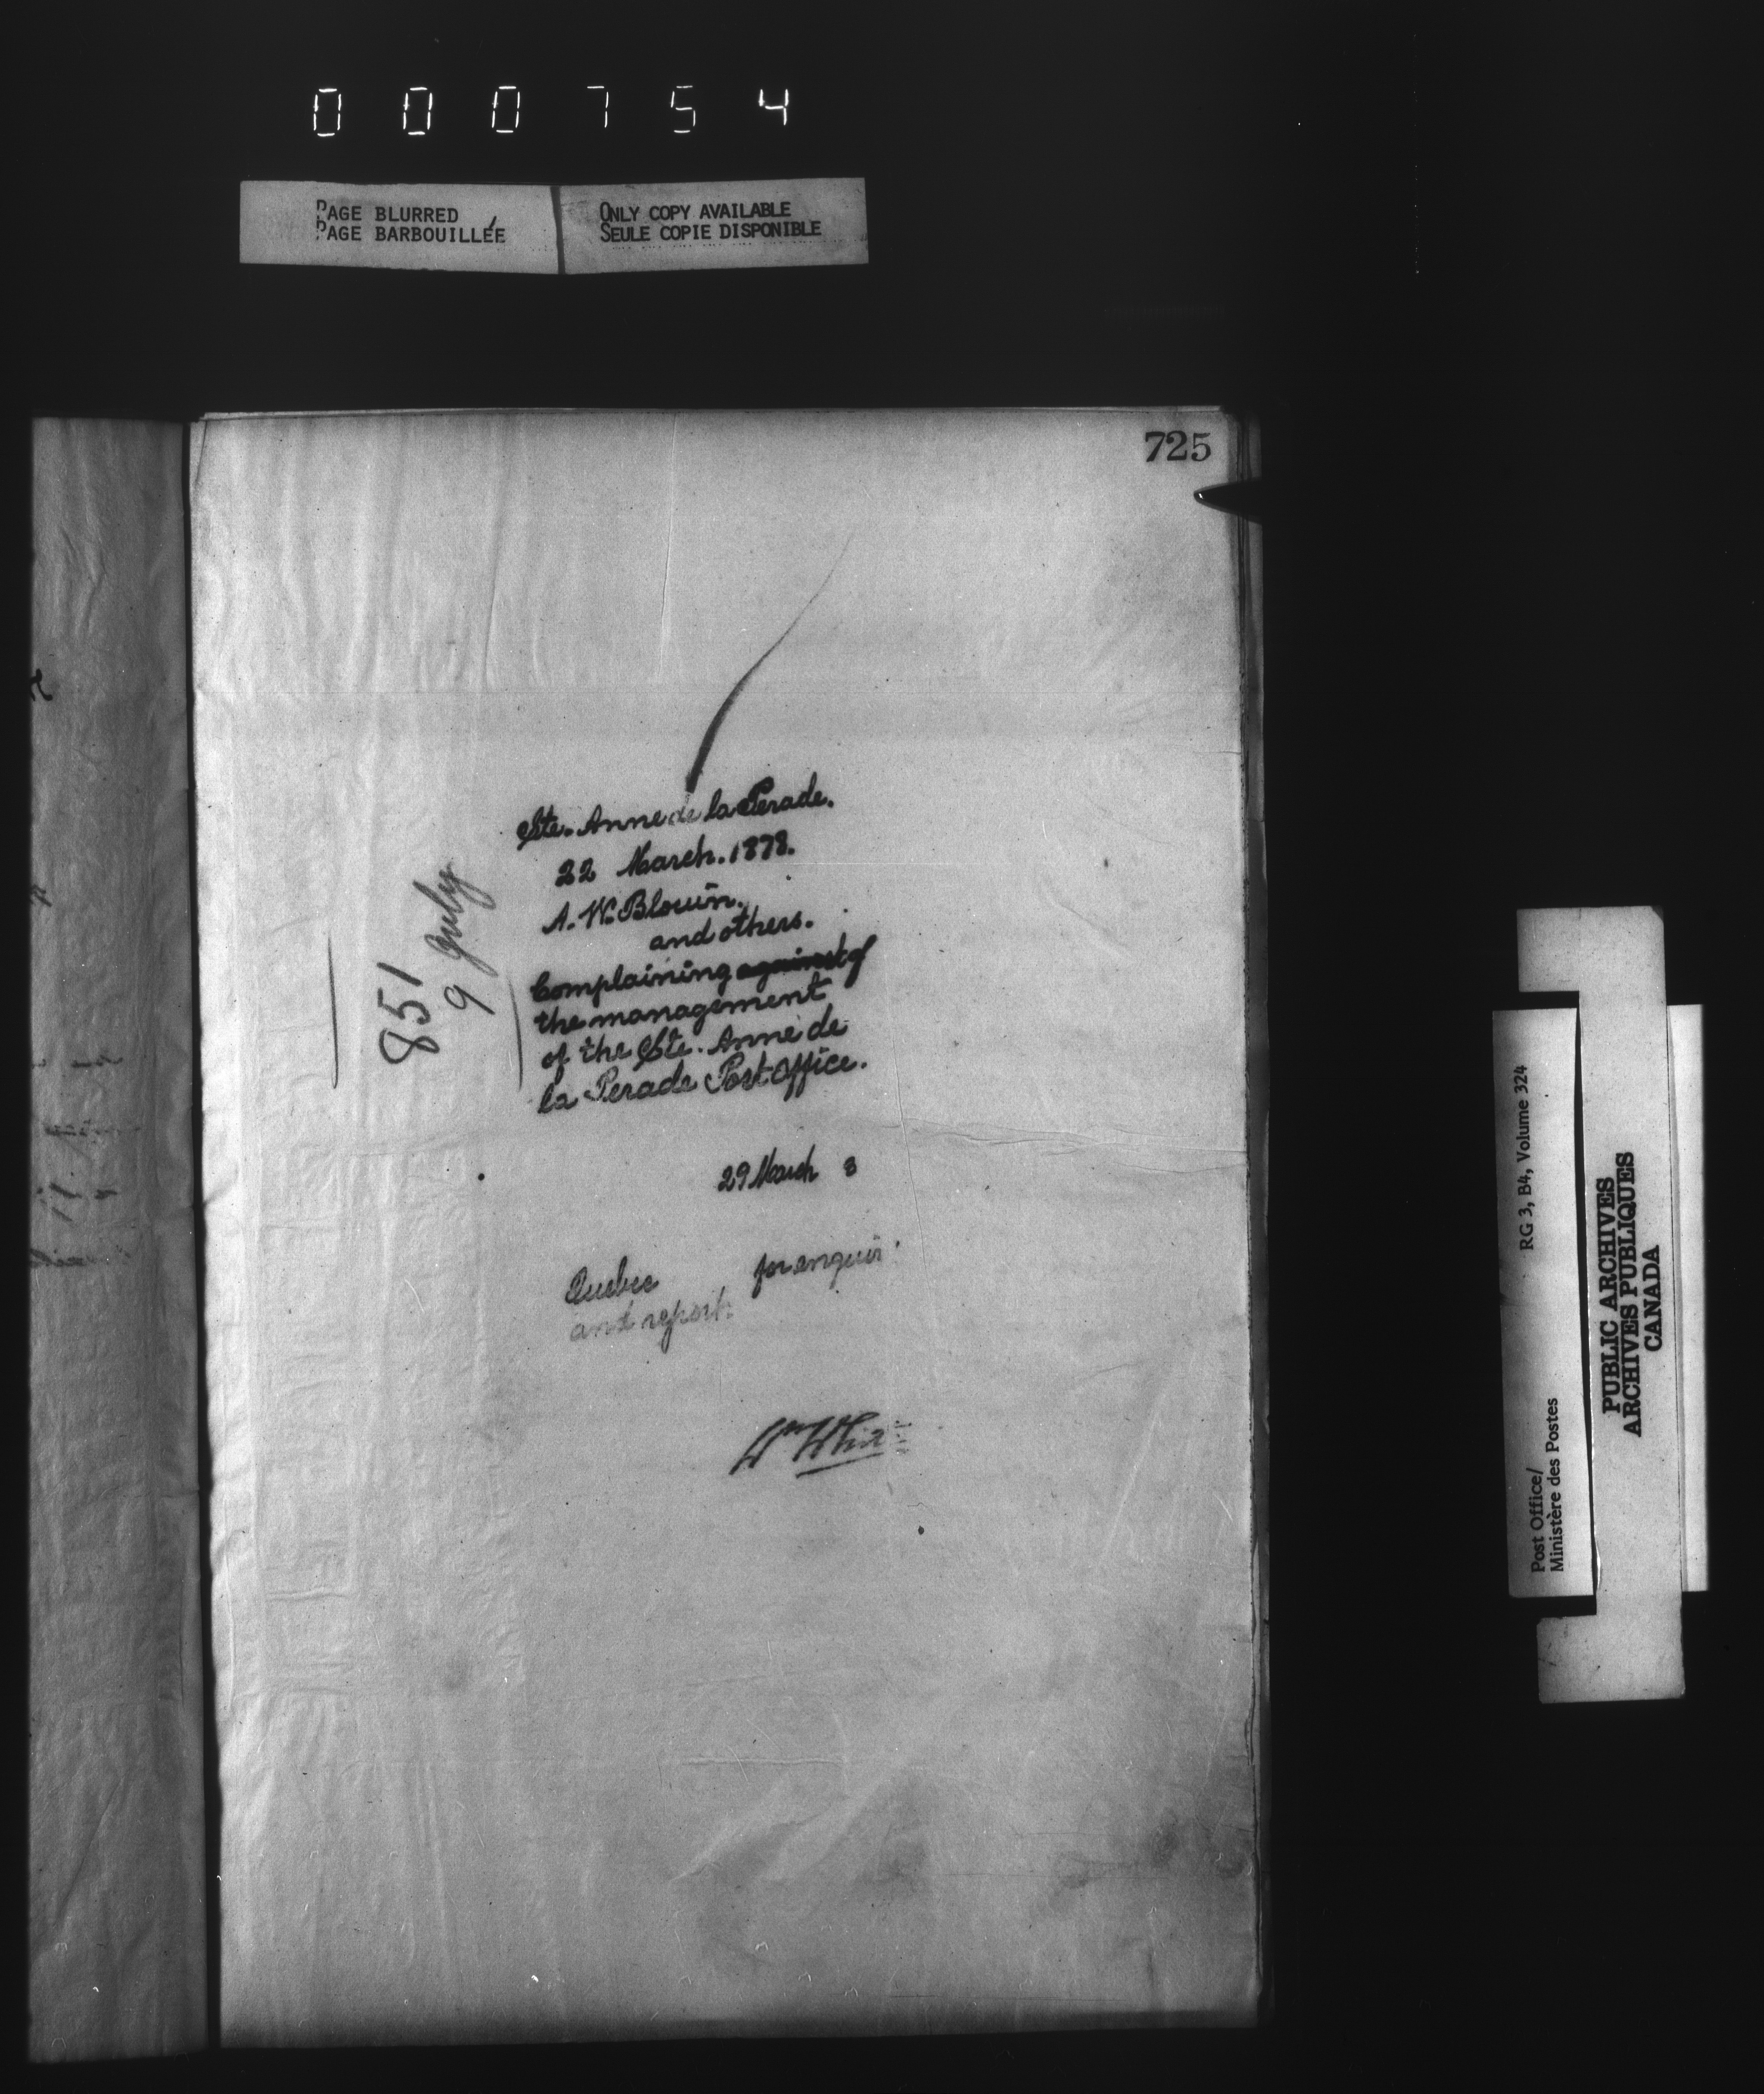 000754
PAGE BLURRED
PAGE BARBOUILLÉE
ONLY COPY AVAILABLE
SEULE COPIE DISPONIBLE
725
Ste. Anne de la Perade.
22 March. 1878.
A. W. Blouin.
and others.
Complaining against of
the management
of the Ste. Anne de
la Perade Post Office.
851
9 July
29 March 8
Quebec for enquir
and report.
Wm Whi
Post Office/ RG 3, B4, Volume 324
Ministère des Postes
PUBLIC ARCHIVES
ARCHIVES PUBLIQUES
CANADA